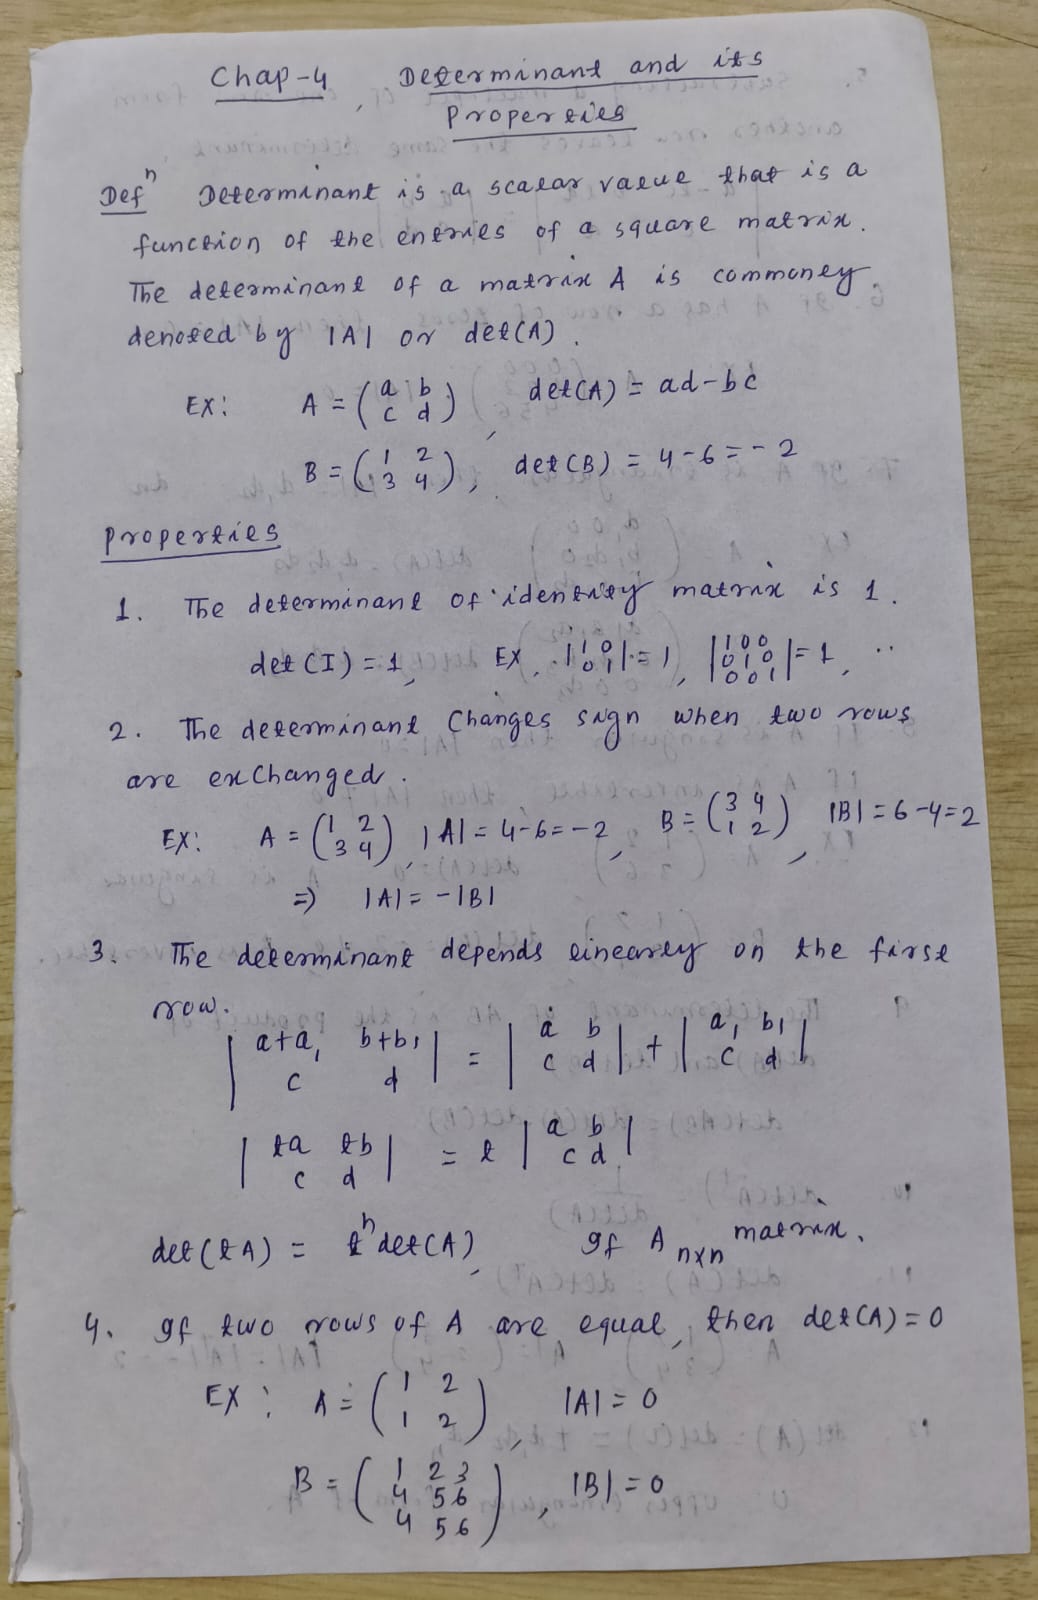 Chap-4, Determinant and its
Properties
Defⁿ Determinant is a scalar value that is a
function of the entries of a square matrix.
The determinant of a matrix A is commonly
denoted by |A| or det(A).
EX: A = (a b; c d), det(A) = ad-bc
B = (1 2; 3 4), det(B) = 4-6 = -2
Properties
1. The determinant of identity matrix is 1.
det(I) = 1, EX. |1 0; 0 1| = 1, |1 0 0; 0 1 0; 0 0 1| = 1, ..
2. The determinant changes sign when two rows
are exchanged.
EX: A = (1 2; 3 4), |A| = 4-6 = -2, B = (3 4; 1 2), |B| = 6-4=2
⇒ |A| = -|B|
3. The determinant depends linearly on the first
row.
|a+a₁ b+b₁; c d| = |a b; c d| + |a₁ b₁; c d|
|ta tb; c d| = t |a b; c d|
det(tA) = tⁿdet(A), If A n×n matrix.
4. If two rows of A are equal, then det(A) = 0
EX: A = (1 2; 1 2), |A| = 0
B = (1 2 3; 4 5 6; 4 5 6), |B| = 0